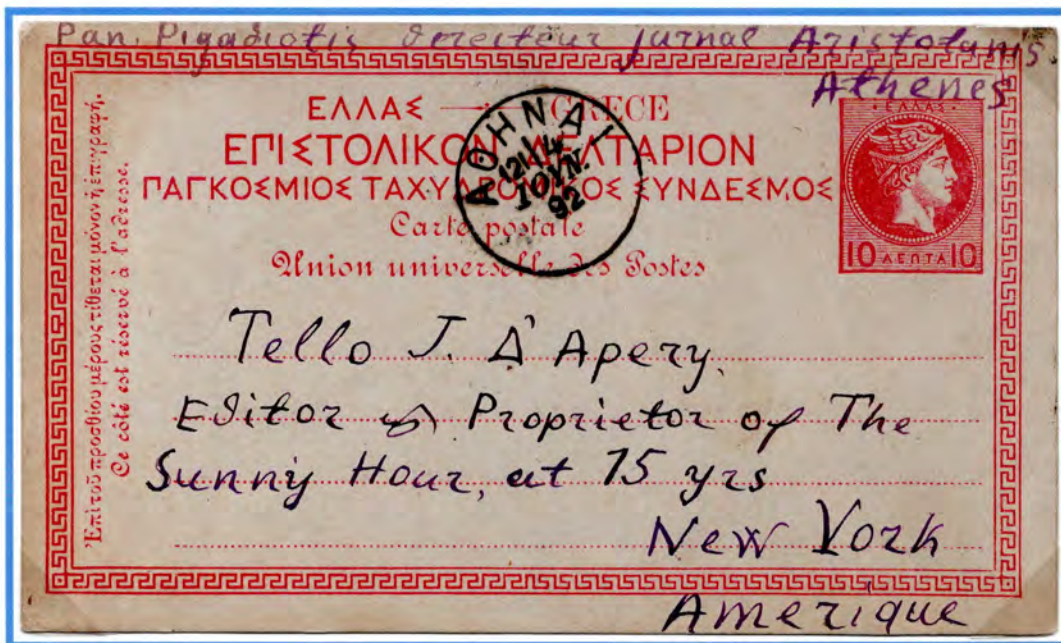 Pan. Pigadiotis directeur jurnal Aristofanis.
Athenes
ΕΛΛΑΣ — GRECE
ΕΠΙΣΤΟΛΙΚΟΝ ΔΕΛΤΑΡΙΟΝ
ΠΑΓΚΟΣΜΙΟΣ ΤΑΧΥΔΡΟΜΙΚΟΣ ΣΥΝΔΕΣΜΟΣ
Carte postale
Union universelle des Postes
ΑΘΗΝΑΙ
ΙΟΥΝ.
92
·ΕΛΛΑΣ·
10 ΛΕΠΤΑ 10
Ἐπὶ τοῦ προσθίου μέρους τίθεται μόνον ἡ ἐπιγραφή.
Ce côté est réservé à l'adresse.
Tello J. Δ'Apery.
Editor & Proprietor of The
Sunny Hour, at 15 yrs
New York
Amerique